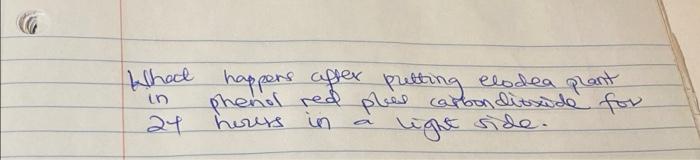 What happens after putting elodea plant
in phenol red plus carbondioxide for
24 hours in a light side.